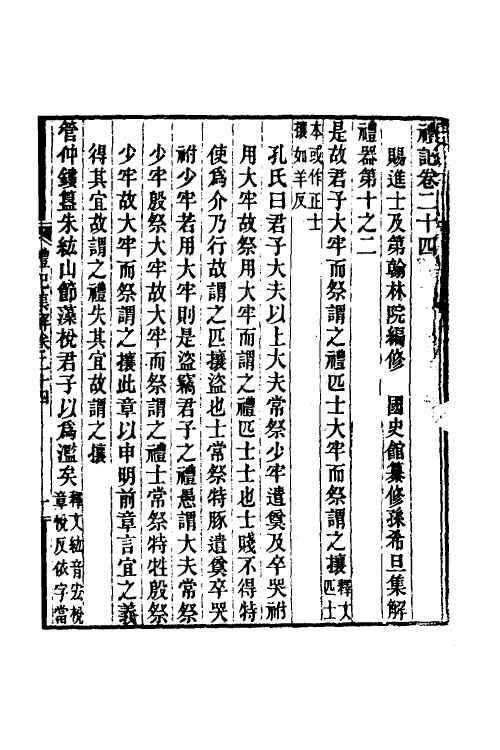 禮記卷二十四
賜進士及第翰林院編修　國史館纂修孫希旦集解
禮器第十之二
是故君子大牢而祭謂之禮匹士大牢而祭謂之攘釋文匹士
本或作正士
攘如羊反
孔氏曰君子大夫以上大夫常祭少牢遣奠及卒哭祔
用大牢故祭用大牢而謂之禮匹士士也士賤不得特
使爲介乃行故謂之匹攘盜也士常祭特豚遣奠卒哭
祔少牢若用大牢則是盜竊君子之禮愚謂大夫常祭
少牢殷祭大牢故大牢而祭謂之禮士常祭特牲殷祭
少牢故大牢而祭謂之攘此章以申明前章言宜之義
得其宜故謂之禮失其宜故謂之攘
管仲鏤簋朱紘山節藻梲君子以爲濫矣釋文紘音宏梲
章悅反依字當
禮記集解卷二十四